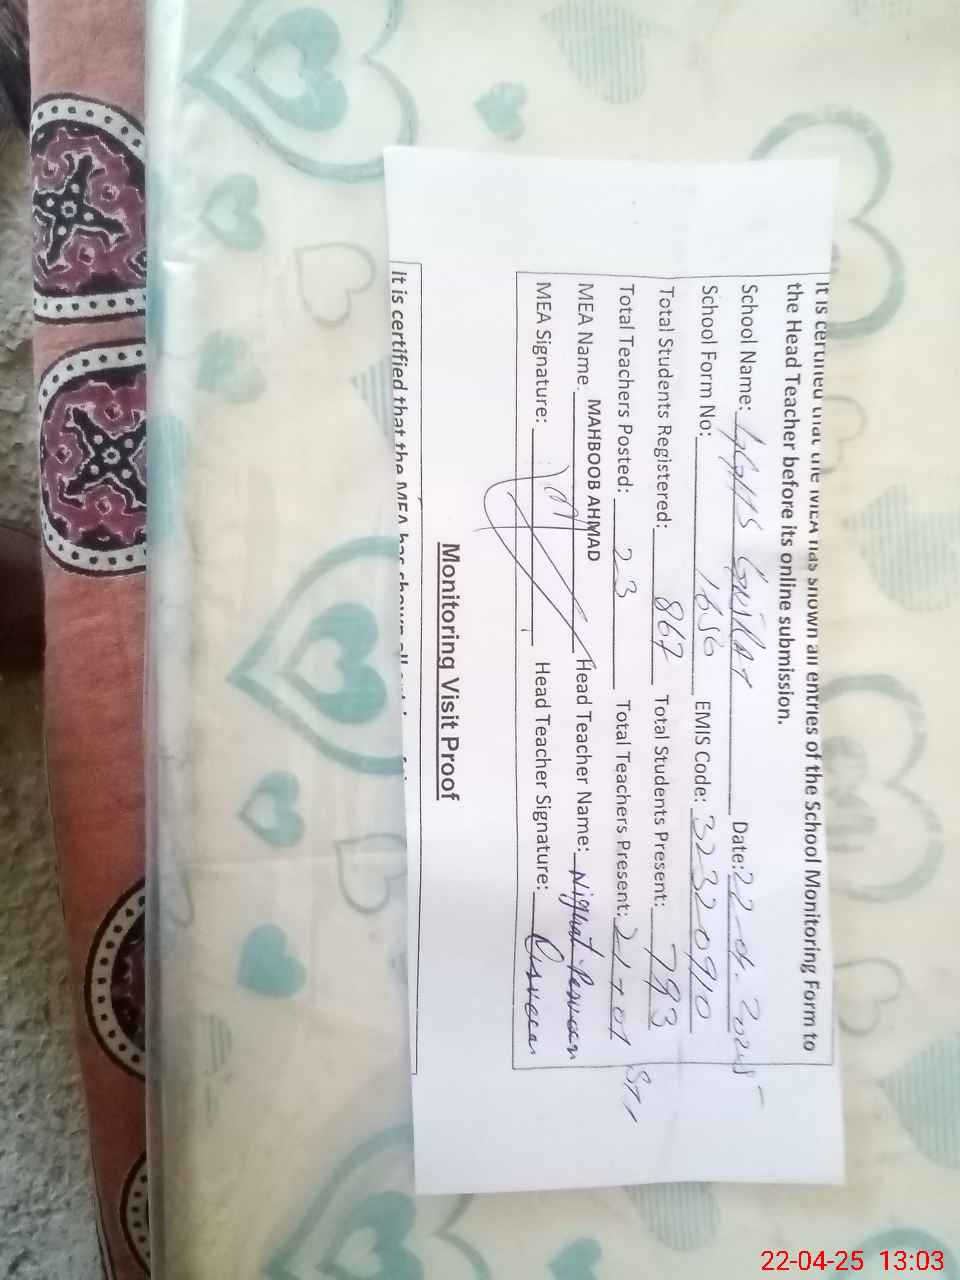 It is certified that the MEA has shown all entries of the School Monitoring Form to
the Head Teacher before its online submission.
School Name: Gujrat Date: 22-04-2025
School Form No: 1656 EMIS Code: 32320910
Total Students Registered: 867 Total Students Present: 793
Total Teachers Posted: 23 Total Teachers Present: 21+01 STI
MEA Name: MAHBOOB AHMAD Head Teacher Name: Nighat Parveen
MEA Signature: Head Teacher Signature: Parveen
Monitoring Visit Proof
It is certified that the MEA has shown all
22-04-25 13:03